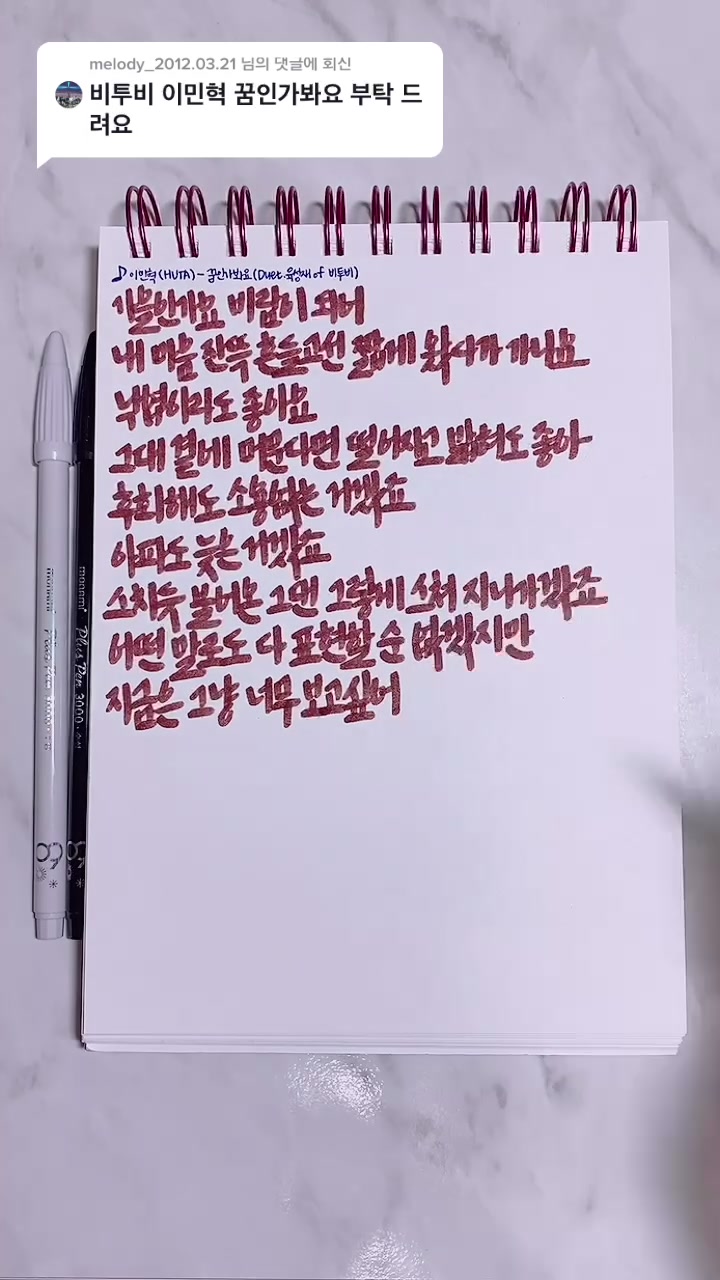 melody_2012.03.21 님의 댓글에 회신
비투비 이민혁 꿈인가봐요 부탁 드
려요
이민혁(HUTA) - 꿈인가봐요 (Duet. 육성재 of 비투비)
가을인가요 바람이 되어
내 마음 잔뜩 흔들고선 짧게 왔다가 가나요
낙엽이라도 좋아요
그대 곁에 머문다면 떨어지고 밟혀도 좋아
후회해도 소용없는 거겠죠
아파도 늦은 거겠죠
소리죽 불어온 그댄 그렇게 스쳐 지나가겠죠
어떤 말로도 다 표현할 순 없겠지만
지금은 그냥 너무 보고싶어
monami Plus Pen 3000
monami Plus Pen 3000